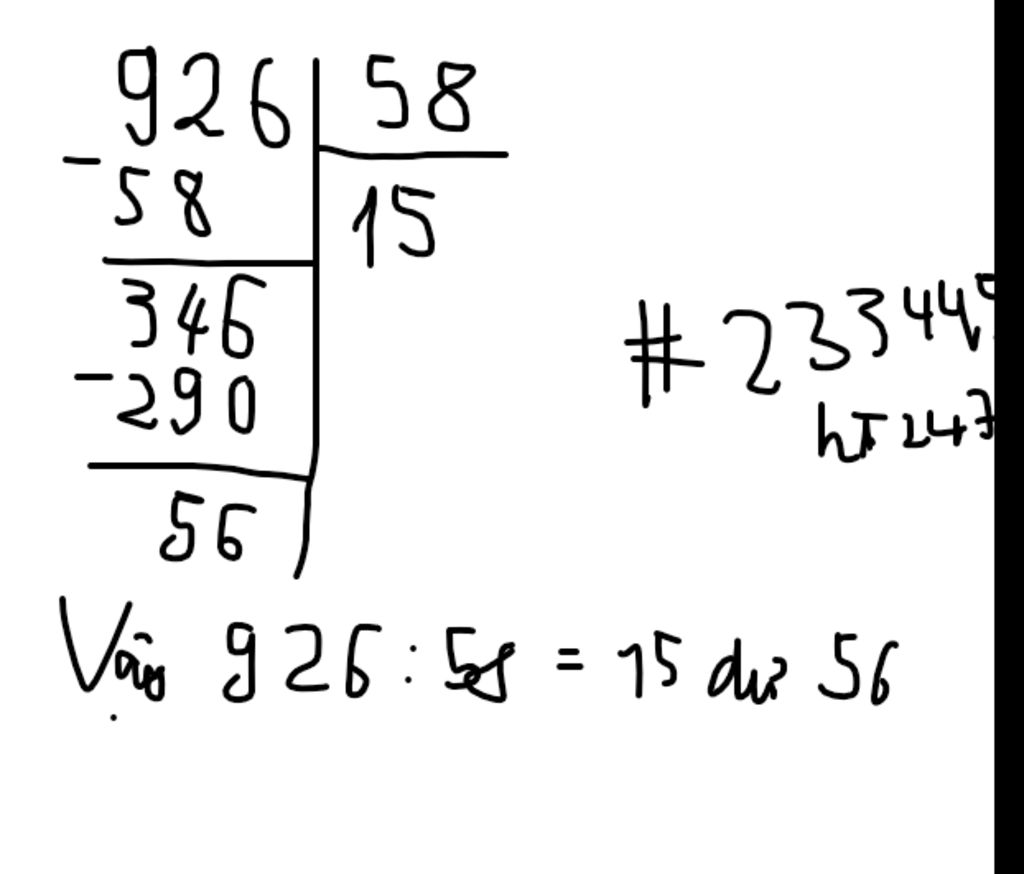 926 58
- 58 15
346
- 290
56
# 2333444
hT 247
Vậy 926 : 58 = 15 dư 56